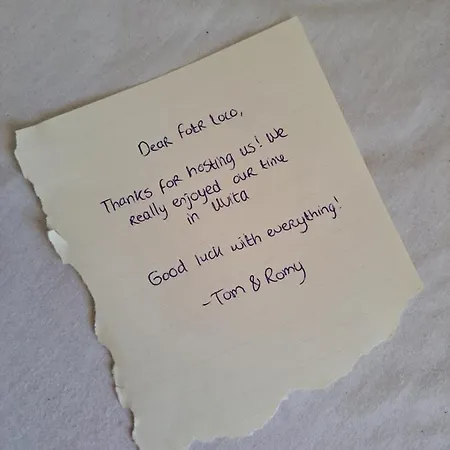 Dear Fotr Loco,
Thanks for hosting us! We
really enjoyed our time
in Uvita
Good luck with everything!
-Tom & Romy